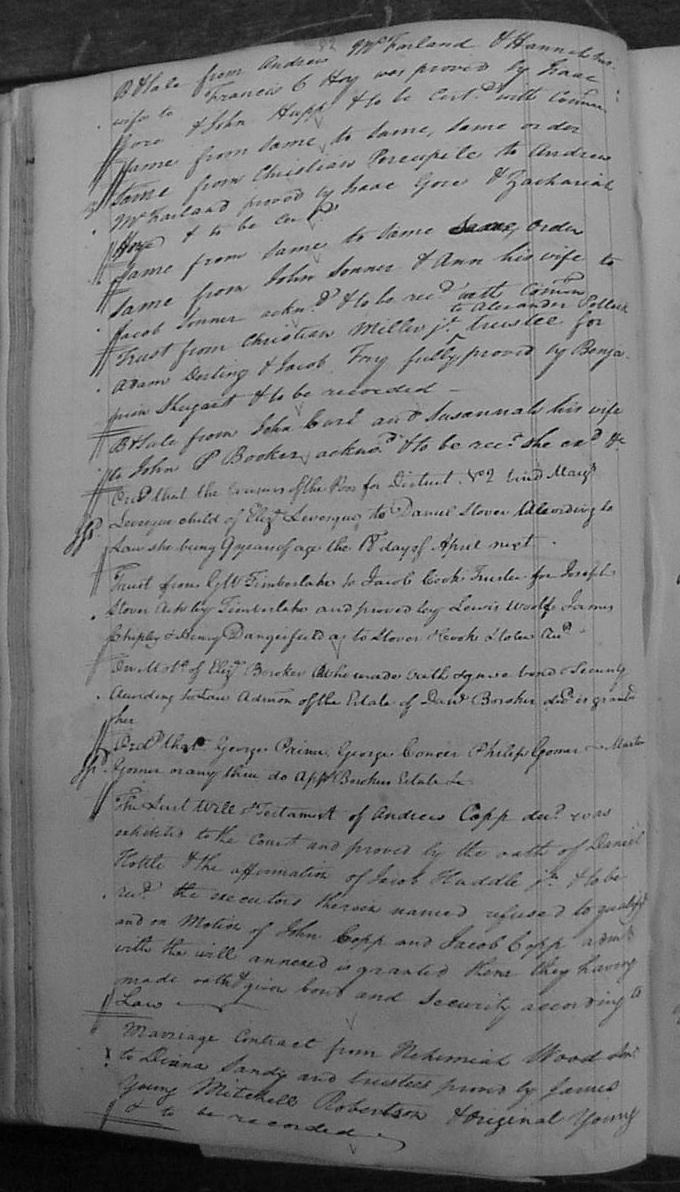 B & Sale from Andrew McFarland & Hannah his
wife to Francis C Hoy was proved by Isaac
Gore & John Hupp & to be Cert.d with Comn
Same from same to same, same order
Same from Christian to Andrew
McFarland proved by Isaac Gore & Zachariah
& to be Cerd
Same from same to same order
Same from John Sonner & Ann his wife to
Jacob Sonner ackn.d & to be rec.d with Comn
to Alexander Pollock
Trust from Christian Miller jr. trustee for
Adam Deiting & Jacob Fry fully proved by Benja
min & to be recorded
B & Sale from John and Susannah his wife
to John P Booker ackno.d & to be rec.d she ex.d &c
Ord that the of the Poor for District No 2 bind Mary
Levesque child of Eliz. Levesque to Daniel Stover According to
Law she being 9 years of age the 18 day of April next.
Trust from G W Timberlake to Jacob Cooke Trustee for Joseph
Stover Timberlake and proved by Lewis Woolf James
Shipley & Henry Dangerfield as to Stover & Cook
On Mot.n of Eliz. Boroker who made oath & gave bond & Security
According to Law Admon of the Estate of Dan.l Boroker decd is granted
her
Ord.d that George Prince George Philip Gomer & Martin
Gomer or any three do App Borokers Estate &c
The Last Will & Testament of Andrew Copp dec.d was
exhibited to the Court and proved by the oath of Daniel
Hottle & the affirmation of Jacob Huddle jr. & to be
rec.d the executors therein named refused to qualify
and on Motion of John Copp and Jacob Copp adm.n
with the will annexed is granted them they having
made oath & given bond and Security according to
Law
Marriage Contract from Nehemiah Wood Sen.
to Diana Sandy and trustees proved by James
Young Mitchell Robertson & Original Young
& to be recorded